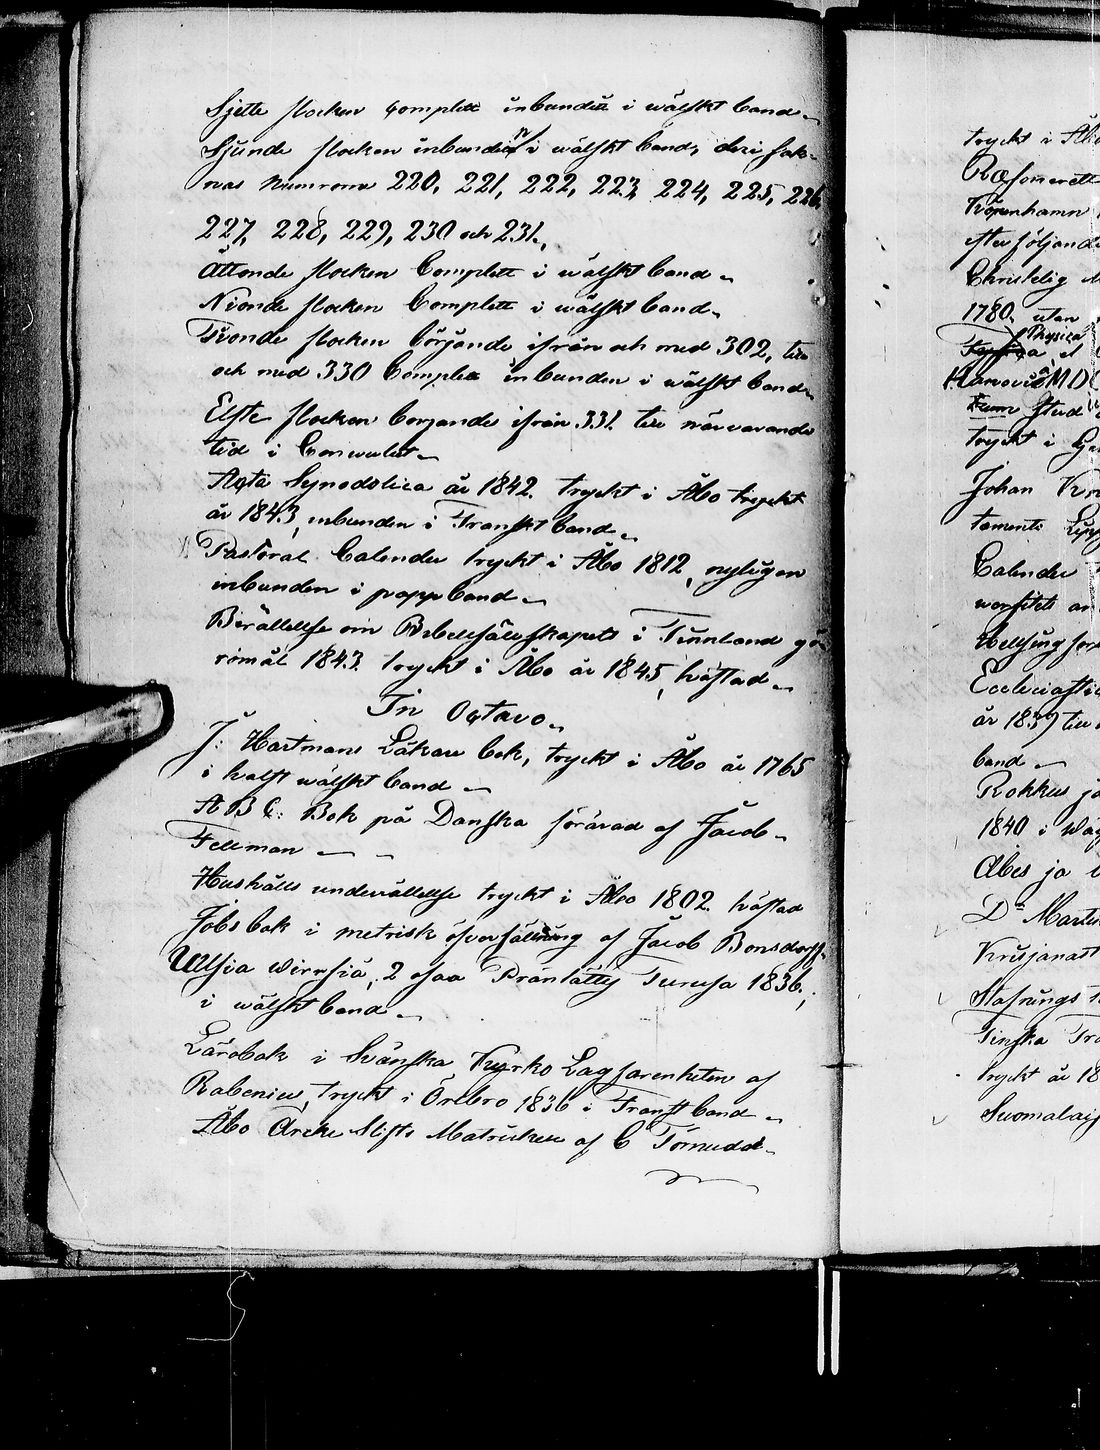 Sjette flocken Complett inbunden i wälskt band
Sjunde flocken inbunden i wälskt band, deri sak-
nas Numrorna 220, 221, 222, 223, 224, 225, 226,
227, 228, 229, 230 och 231.
Åttonde flocken Complett i wälskt band
Nionde flocken Complett i wälskt band
Tionde flocken börjande ifrån och med 302, till
och med 330 Complett inbunden i wälskt band
Elfte flocken börjande ifrån 331. till närvarande
tid i Convulut
Acta Synodolica år 1842. tryckt i Åbo tryckt
år 1843, inbunden i Franskt band
Pastoral Calender tryckt i Åbo 1812, nyligen
inbunden i papp band
Berättelse om Bibelsälskapets i Finnland gö-
romål 1843. tryckt i Åbo år 1845, häftad
In Octavo
J: Hartmans Läkare bok, tryckt i Åbo år 1765
i halft wälskt band
A B C: Bok på Danska förärad af Jacob
Fellman
Hushålls underrättelse tryckt i Åbo 1802. häftad
Jobs bok i metrisk öfversättning af Jacob Bonsdorff
Ulsia Wirrsiä, 2 osaa Präntätty Turusa 1836.,
i wälskt band
Lärobok i Svänska Kyrko Lagfarenheten af
Rabenius, tryckt i Örebro 1836 i Franst band
Åbo Ärcke Stifts Matrickel af C Törnudd
tryckt i Åbo
Ræsonerett
Köpenhamn
efter följande
Christelig
1780. utan
Physica
et
M D
Stud
tryckt i
Johan
taments
Calender
Helsingfors
Ecclesiastic
år 1837 till
band
Rokkus ja
1840 i
Abes ja
D: Marten
Krisjanast
Stafnings
Finska
tryckt år 18
Suomalais